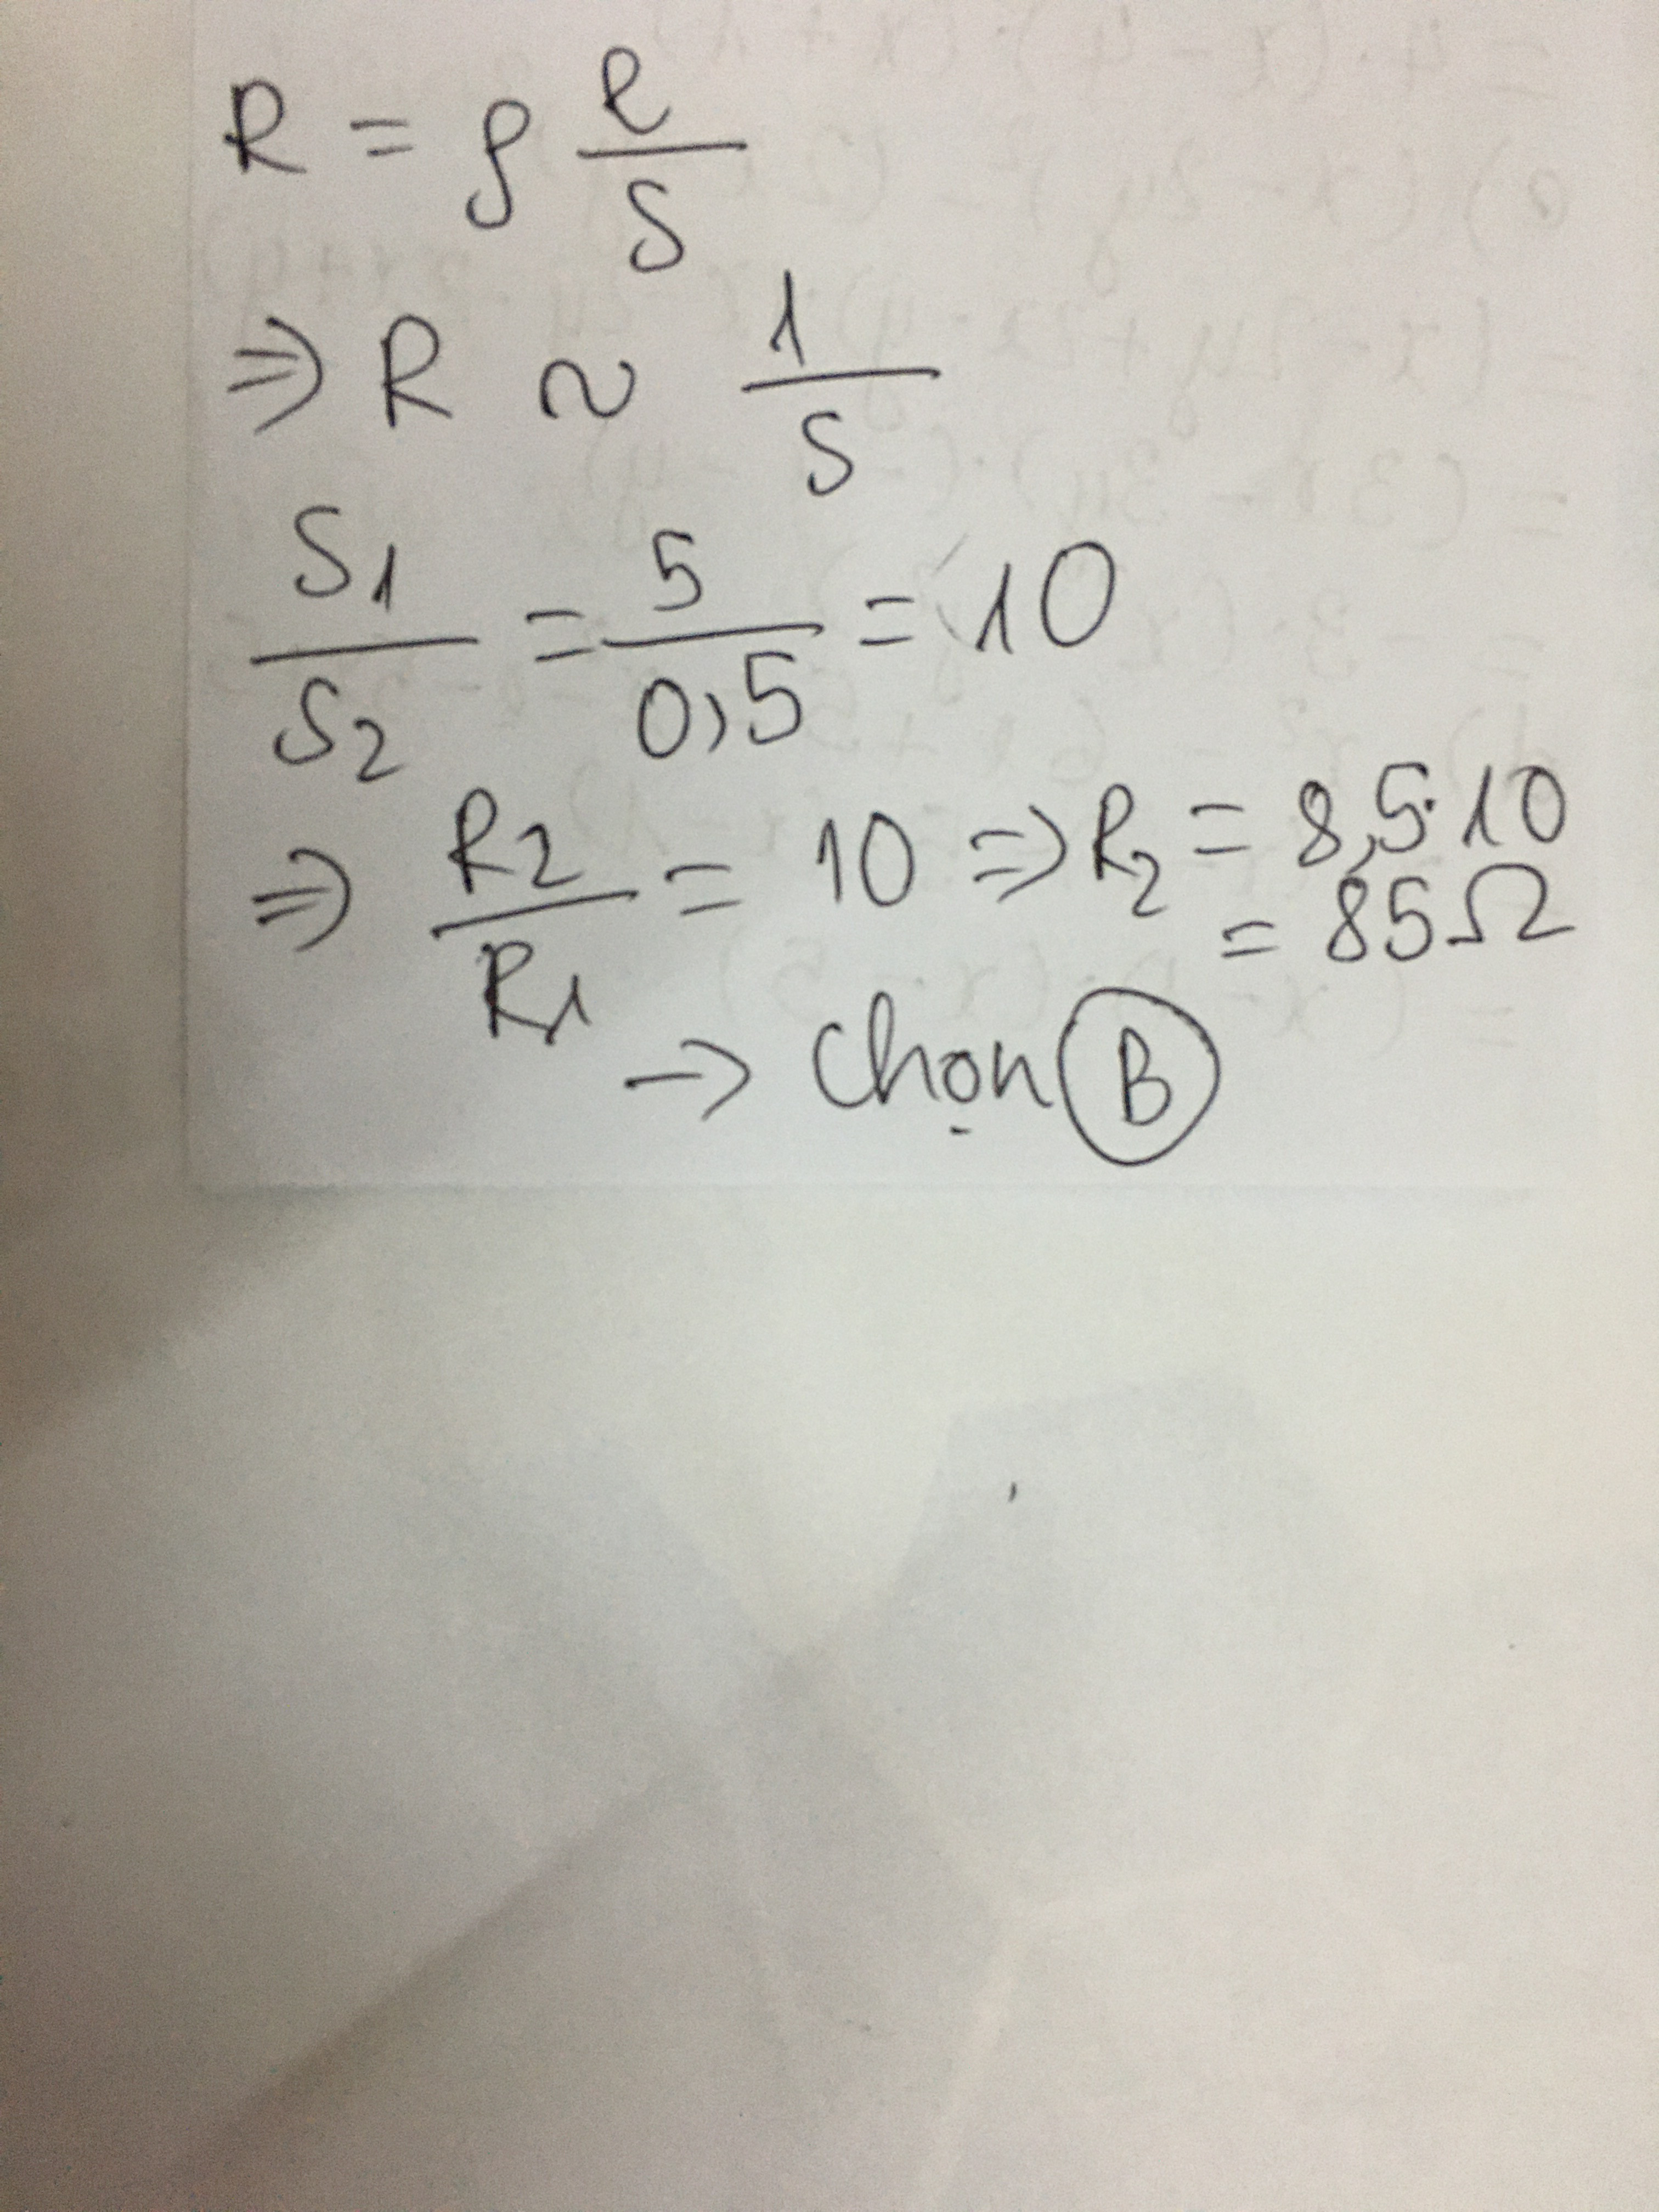 R = ρ ℓ/S
⇒ R ~ 1/S
S1/S2 = 5/0,5 = 10
⇒ R2/R1 = 10 ⇒ R2 = 8,5·10
= 85Ω
→ Chọn B